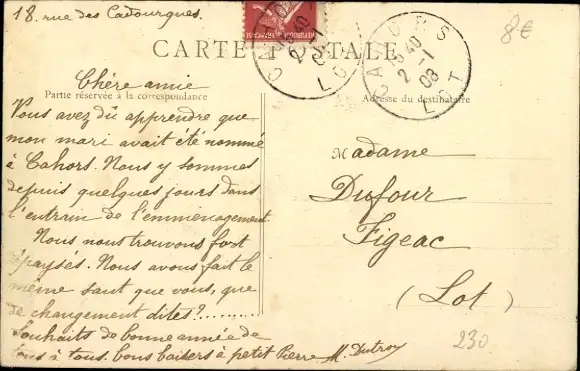 18. rue des Cadourques.
8€
CARTE POSTALE
CAHORS
LOT
CAHORS
2-1
08
LOT
Chère amie
Partie réservée à la correspondance
Adresse du destinataire
Vous avez dû apprendre que
mon mari avait été nommé
à Cahors. Nous y sommes
depuis quelques jours dans
l'entrain de l'emménagement.
Nous nous trouvons fort
dépaysés. Nous avons fait le
même saut que vous, que
de changement dites?..........
Souhaits de bonne année de
tous à tous. bons baisers à petit Pierre M. Dutroy
Madame
Dufour
Figeac
(Lot)
230